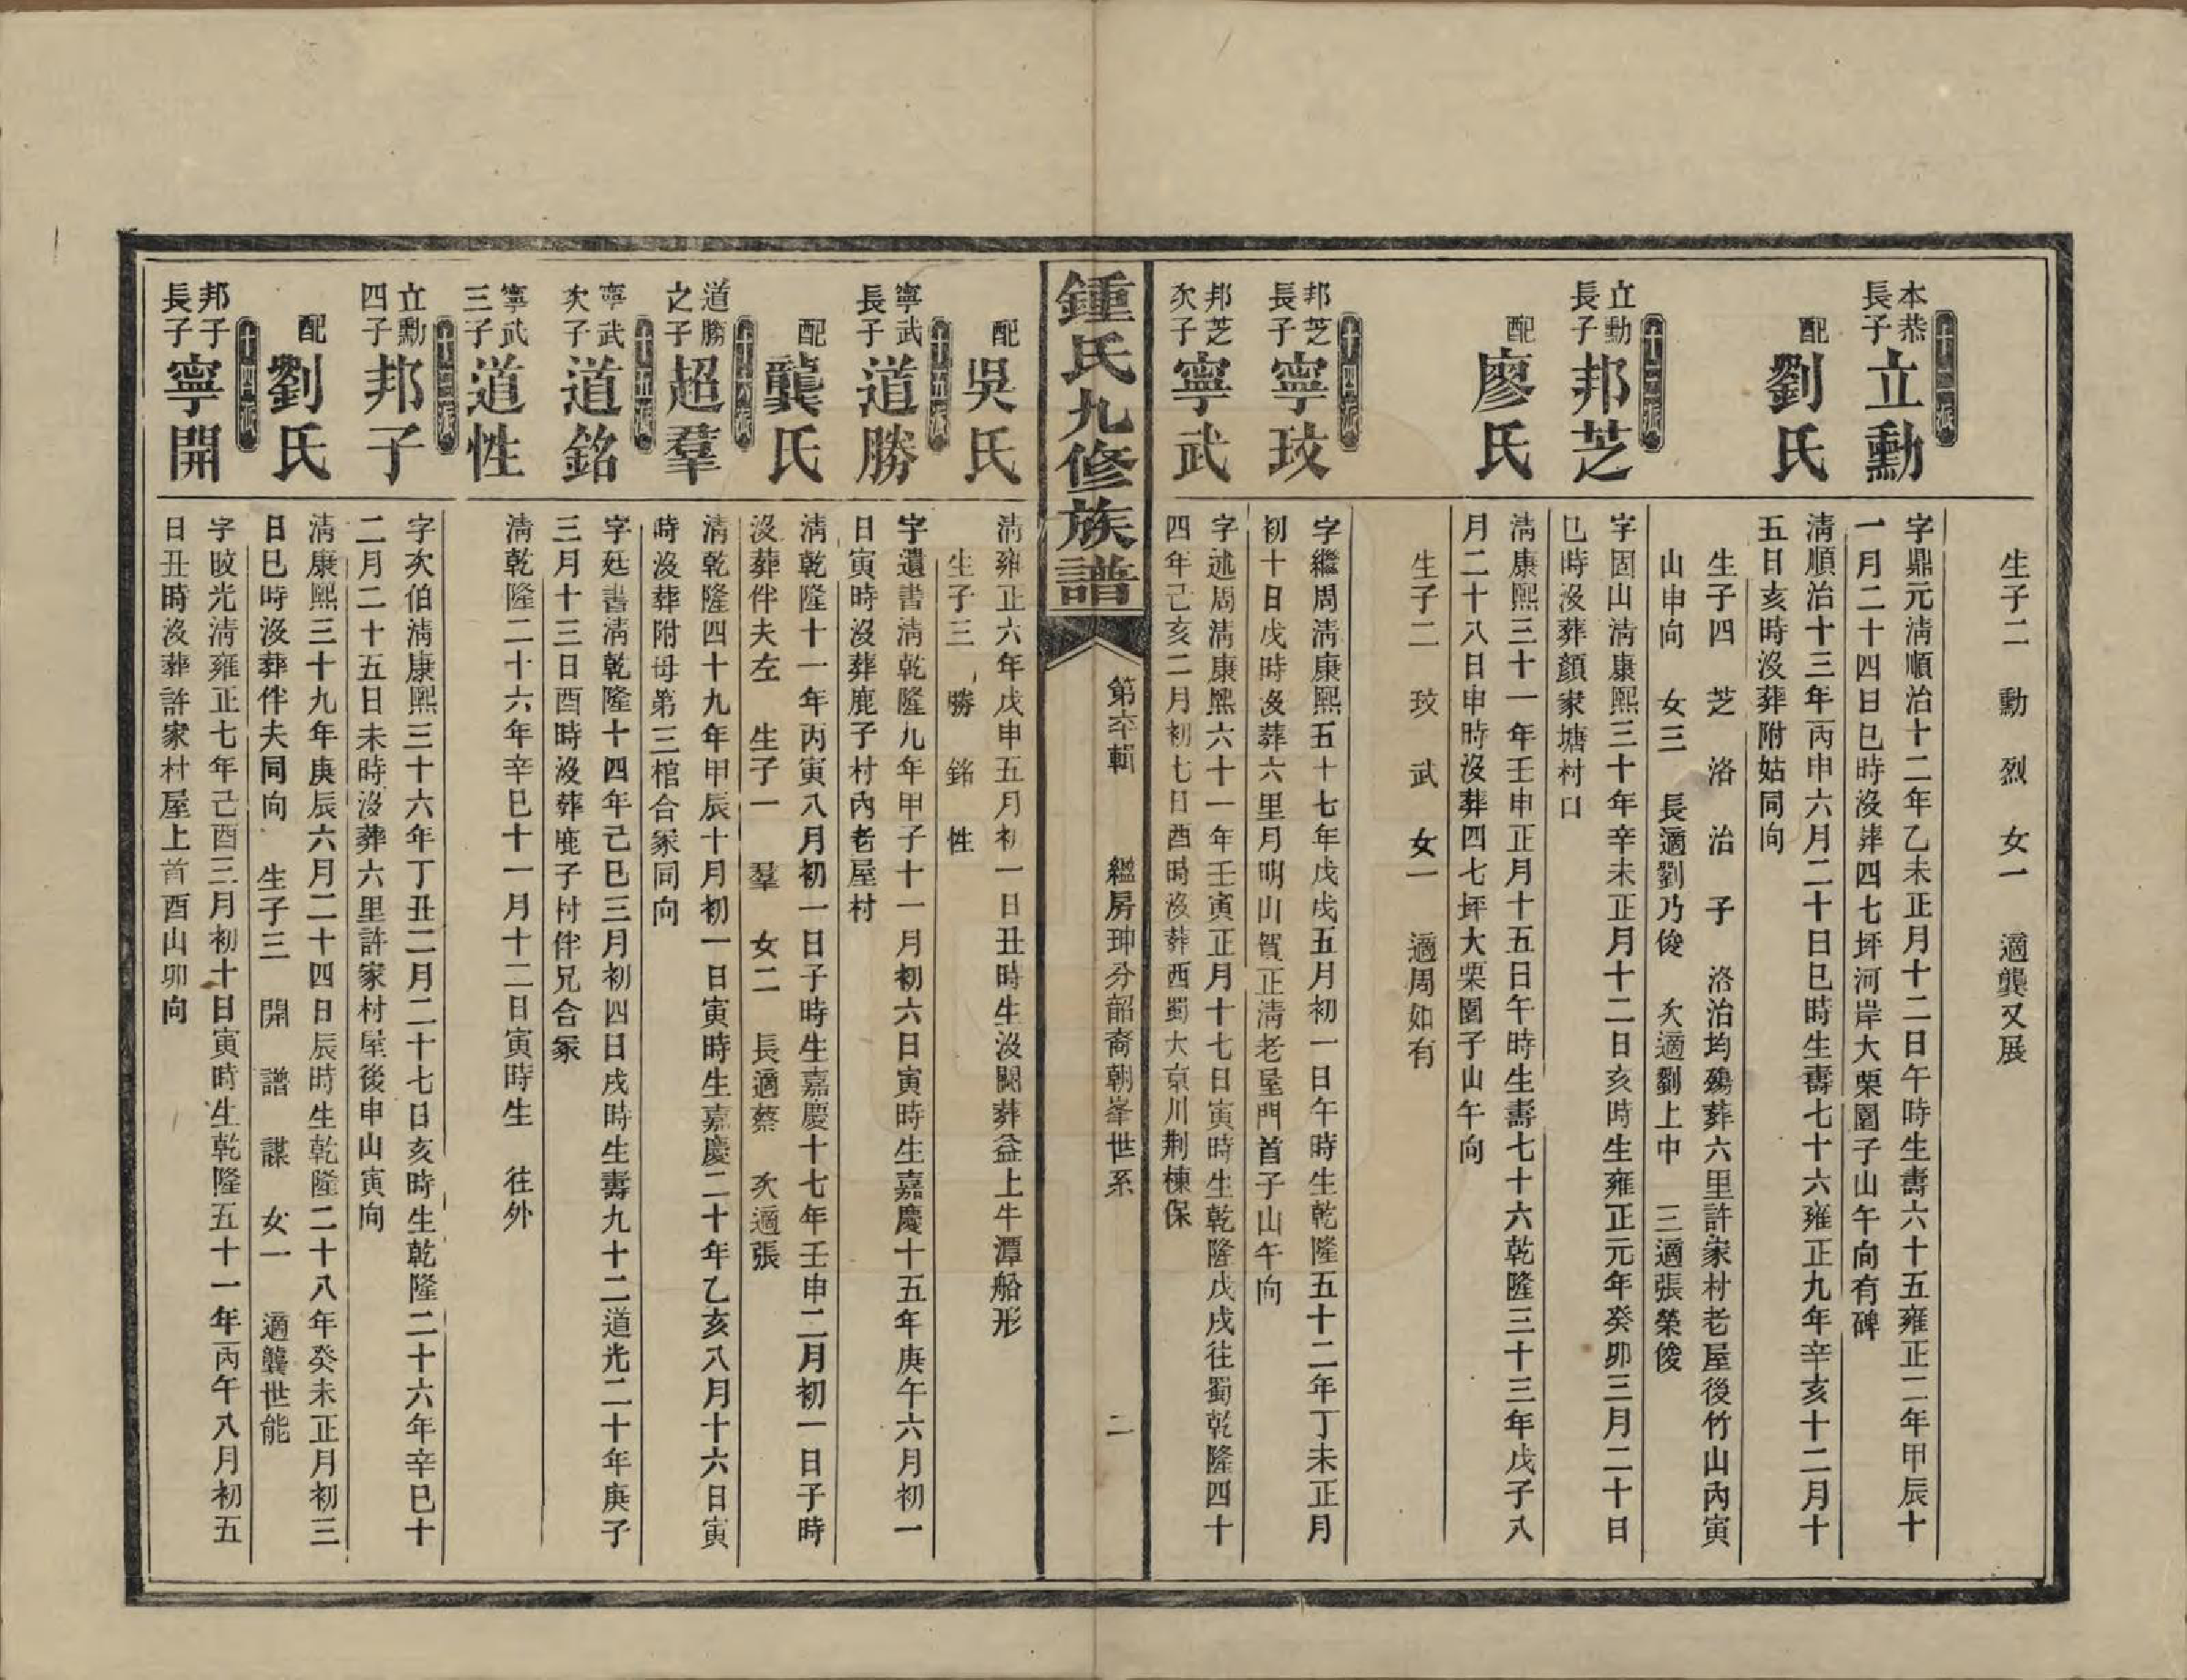 生子二　勳　烈　女一　適龔又展
十二派
本恭長子
立勳
字鼎元淸順治十二年乙未正月十二日午時生壽六十五雍正二年甲辰十
一月二十四日巳時沒葬四七坪河岸大栗園子山午向有碑
配
劉氏
淸順治十三年丙申六月二十日巳時生壽七十六雍正九年辛亥十二月十
五日亥時沒葬附姑同向
生子四　芝　洛　治　子　洛治均殤葬六里許家村老屋後竹山內寅
山申向　女三　長適劉乃俊　次適劉上中　三適張榮俊
十三派
立勳長子
邦芝
字固山淸康熙三十年辛未正月十二日亥時生雍正元年癸卯三月二十日
巳時沒葬顏家塘村口
配
廖氏
淸康熙三十一年壬申正月十五日午時生壽七十六乾隆三十三年戊子八
月二十八日申時沒葬四七坪大栗園子山午向
生子二　玟　武　女一　適周如有
十四派
邦芝長子
寧玟
字繼周淸康熙五十七年戊戌五月初一日午時生乾隆五十二年丁未正月
初十日戌時沒葬六里月明山賀正淸老屋門首子山午向
邦芝次子
寧武
字述周淸康熙六十一年壬寅正月十七日寅時生乾隆戊戌往蜀乾隆四十
四年己亥二月初七日酉時沒葬西蜀大京川荆棟保
鍾氏九修族譜
第六輯　繼房珅分韶裔朝峯世系　二
配
吳氏
淸雍正六年戊申五月初一日丑時生沒闕葬益上牛潭船形
生子三　勝　銘　性
十五派
寧武長子
道勝
字遺書淸乾隆九年甲子十一月初六日寅時生嘉慶十五年庚午六月初一
日寅時沒葬鹿子村內老屋村
配
龔氏
淸乾隆十一年丙寅八月初一日子時生嘉慶十七年壬申二月初一日子時
沒葬伴夫左　生子一　羣　女二　長適蔡　次適張
十六派
道勝之子
超羣
淸乾隆四十九年甲辰十月初一日寅時生嘉慶二十年乙亥八月十六日寅
時沒葬附母第三棺合冢同向
十五派
寧武次子
道銘
字廷書淸乾隆十四年己巳三月初四日戌時生壽九十二道光二十年庚子
三月十三日酉時沒葬鹿子村伴兄合冢
寧武三子
道性
淸乾隆二十六年辛巳十一月十二日寅時生　往外
十三派
立勳四子
邦子
字次伯淸康熙三十六年丁丑二月二十七日亥時生乾隆二十六年辛巳十
二月二十五日未時沒葬六里許家村屋後申山寅向
配
劉氏
淸康熙三十九年庚辰六月二十四日辰時生乾隆二十八年癸未正月初三
日巳時沒葬伴夫同向　生子三　開　譜　謀　女一　適龔世能
十四派
邦子長子
寧開
字啟光淸雍正七年己酉三月初十日寅時生乾隆五十一年丙午八月初五
日丑時沒葬許家村屋上首酉山卯向